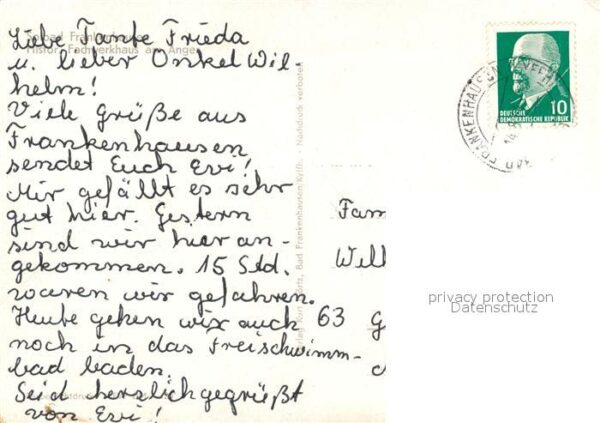 Liebe Tante Frieda
u. lieber Onkel Wil-
helm!
Viele Grüße aus
Frankenhausen
sendet Euch Evi!
Mir gefällt es sehr
gut hier. Gestern
sind wir hier an-
gekommen. 15 Std.
waren wir gefahren.
Heute gehen wir auch
noch in das Freischwimm-
bad baden.
Seid herzlich gegrüßt
von Evi!
Histor. Fachwerkhaus am Anger
Bad Frankenhausen/Kyffh. Nachdruck verboten
10
DEUTSCHE
DEMOKRATISCHE REPUBLIK
BAD FRANKENHAUSEN
Fam
Wilh
63 G
privacy protection
Datenschutz